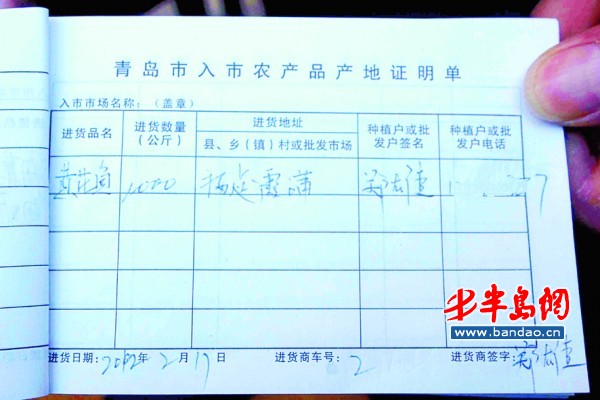 青岛市入市农产品产地证明单
入市市场名称：（盖章）
进货品名 进货数量（公斤） 进货地址 县、乡（镇）村或批发市场 种植户或批发户签名 种植户或批发户电话
黄花鱼 霞浦
半岛网
www.bandao.cn
进货日期：2012年2月17日 进货商车号：2 进货商签字：